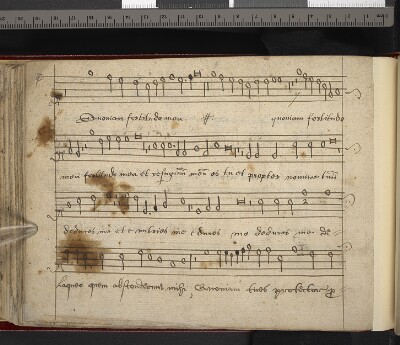 Quoniam fortitudo mea ij quoniam fortitudo
mea fortitudo mea et refugium meum es tu et propter nomen tuum
deduces me et enutries me educes me deduces me de
laqueo quem absconderunt mihi, Quoniam tu es protector